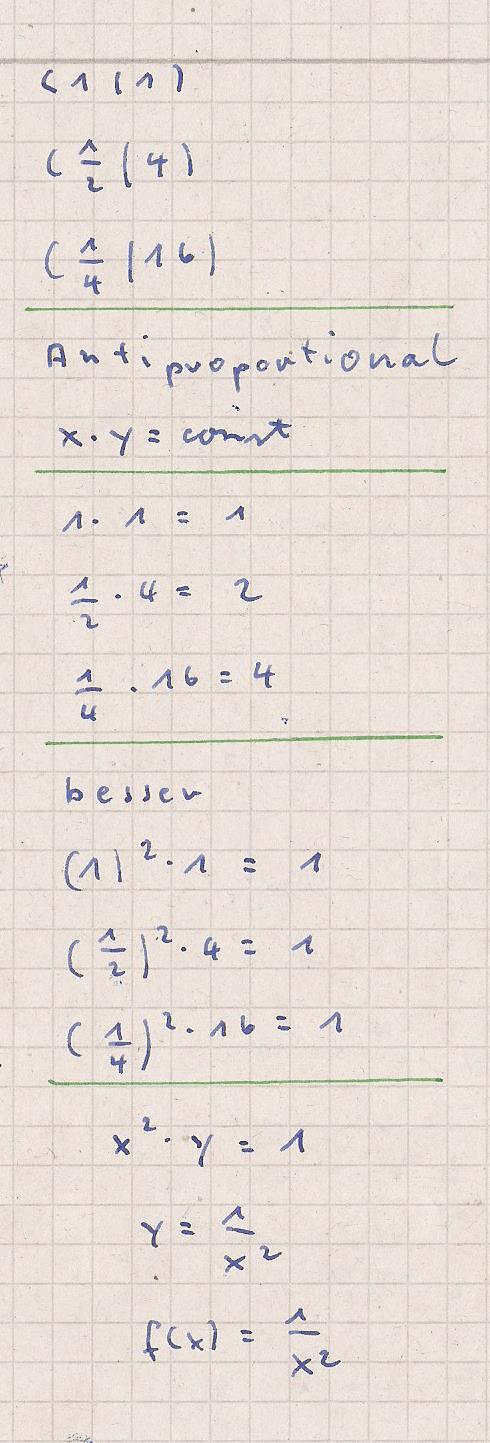 (1|1)
(1/2|4)
(1/4|16)
Antiproportional
x·y = const
1·1 = 1
1/2·4 = 2
1/4·16 = 4
besser
(1)²·1 = 1
(1/2)²·4 = 1
(1/4)²·16 = 1
x²·y = 1
y = 1/x²
f(x) = 1/x²